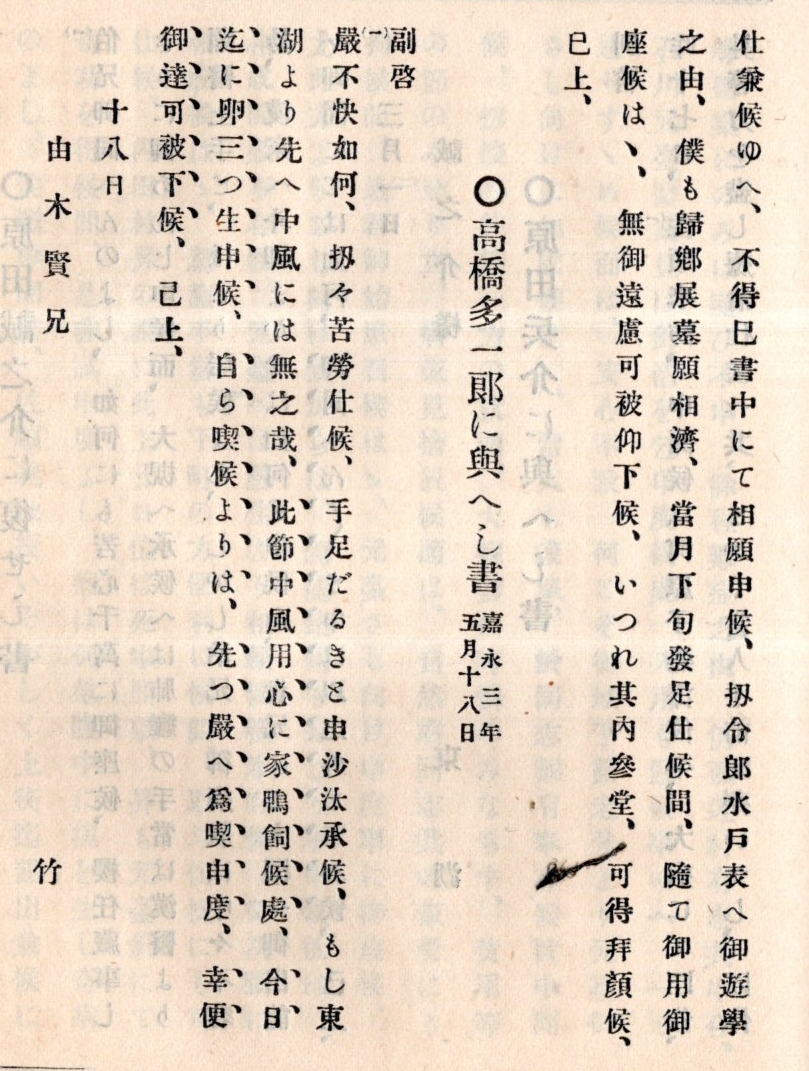 仕兼候ゆへ、不得已書中にて相願申候、扨令郎水戸表へ御遊學
之由、僕も歸鄉展墓願相濟、當月下旬發足仕候間、大隨て御用御
座候はヽ、無御遠慮可被仰下候、いつれ其內參堂、可得拜顏候、
已上、
〇高橋多一郎に與へし書 嘉永三年五月十八日
副啓
(一)
嚴不快如何、扨々苦勞仕候、手足だるきと申沙汰承候、もし東
湖より先へ中風には無之哉、此節中風用心に家鴨飼候處、今日
迄に卵三つ生申候、自ら喫候よりは、先つ嚴へ爲喫申度、幸便
御達可被下候、已上、
十八日
竹
由木賢兄